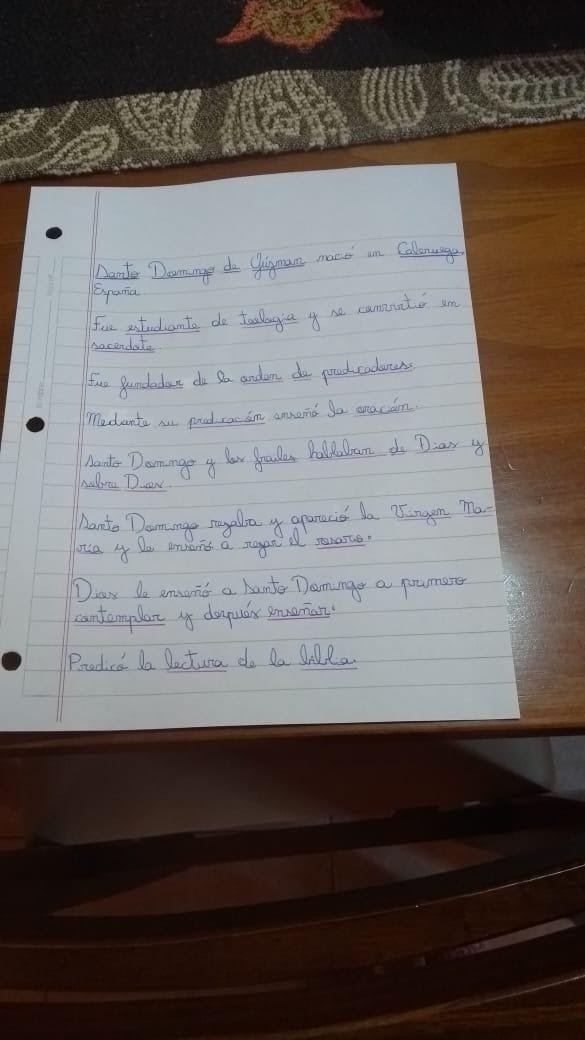 Santo Domingo de Guzman nació en Caleruega,
España
Fue estudiante de teologia y se convirtió en
sacerdote.
Fue fundador de la orden de predicadores.
Mediante su predicación enseñó la oración.
Santo Domingo y los frailes hablaban de Dios y
sobre Dios.
Santo Domingo rezaba y apareció la Virgen Ma-
ría y le enseñó a rezar el rosario.
Dios le enseñó a Santo Domingo a primero
contemplar y después enseñar.
Predicó la lectura de la biblia.